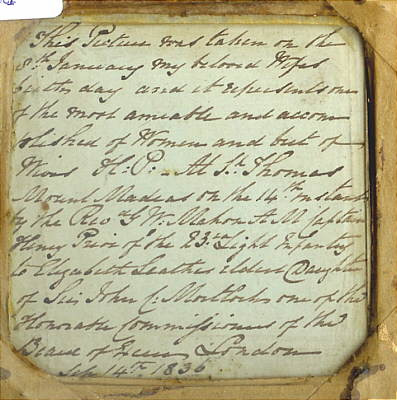 This Picture was taken on the
8th January my beloved Wifes
birth day and it represents one
of the most amiable and accom
plished of Women and best of
Wives H. P. — At St. Thomas
Mount Madras on the 14th Instant
by the Revd. G W. Mahon A M Captain
Henry Prior of the 23rd Light Infantry
to Elizabeth Leathes eldest Daughter
of Sir John C. Mortlock one of the
Honorable Commissioners of the
Board of Excise, London
Sep 14th. 1836